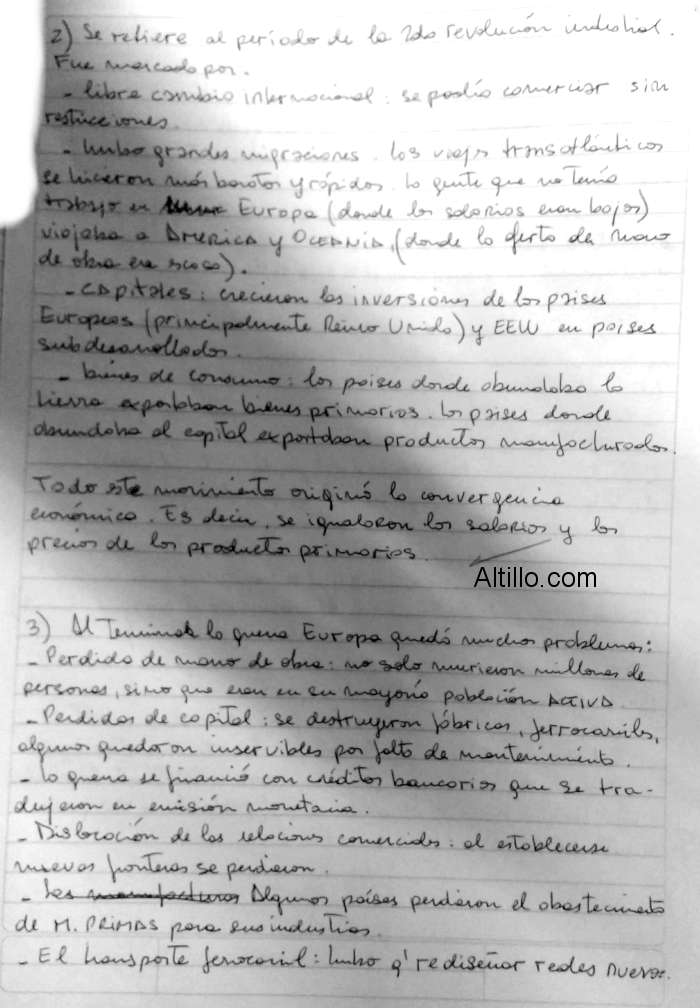 2) Se refiere al período de la 2da revolución industrial.
Fue marcado por.
- libre cambio internacional: se podía comerciar sin
restricciones.
- hubo grandes migraciones. los viajes transatlánticos
se hicieron más baratos y rápidos. la gente que no tenía
trabajo en Europa (donde los salarios eran bajos)
viajaba a AMERICA y OCEANÍA, (donde la oferta de mano
de obra era escasa).
- CAPITALES: crecieron las inversiones de los países
Europeos (principalmente Reino Unido) y EEUU en países
subdesarrollados.
- bienes de consumo: los países donde abundaba la
tierra exportaban bienes primarios. los países donde
abundaba el capital exportaban productos manufacturados.
Todo este movimiento originó la convergencia
económica. Es decir, se igualaron los salarios y los
precios de los productos primarios.
Altillo.com
3) Al Terminar la guerra Europa quedó muchos problemas:
- Perdida de mano de obra: no solo murieron millones de
personas, sino que eran en su mayoría población ACTIVA.
- Perdidas de capital: se destruyeron fábricas, ferrocarriles,
algunos quedaron inservibles por falta de mantenimiento.
- la guerra se financió con créditos bancarios que se tra-
dujeron en emisión monetaria.
- Dislocación de las relaciones comerciales: al establecerse
nuevas fronteras se perdieron.
- Las manufacturas Algunos países perdieron el abastecimiento
de M. PRIMAS para sus industrias.
- El transporte ferrocarril: hubo q' rediseñar redes nuevas.